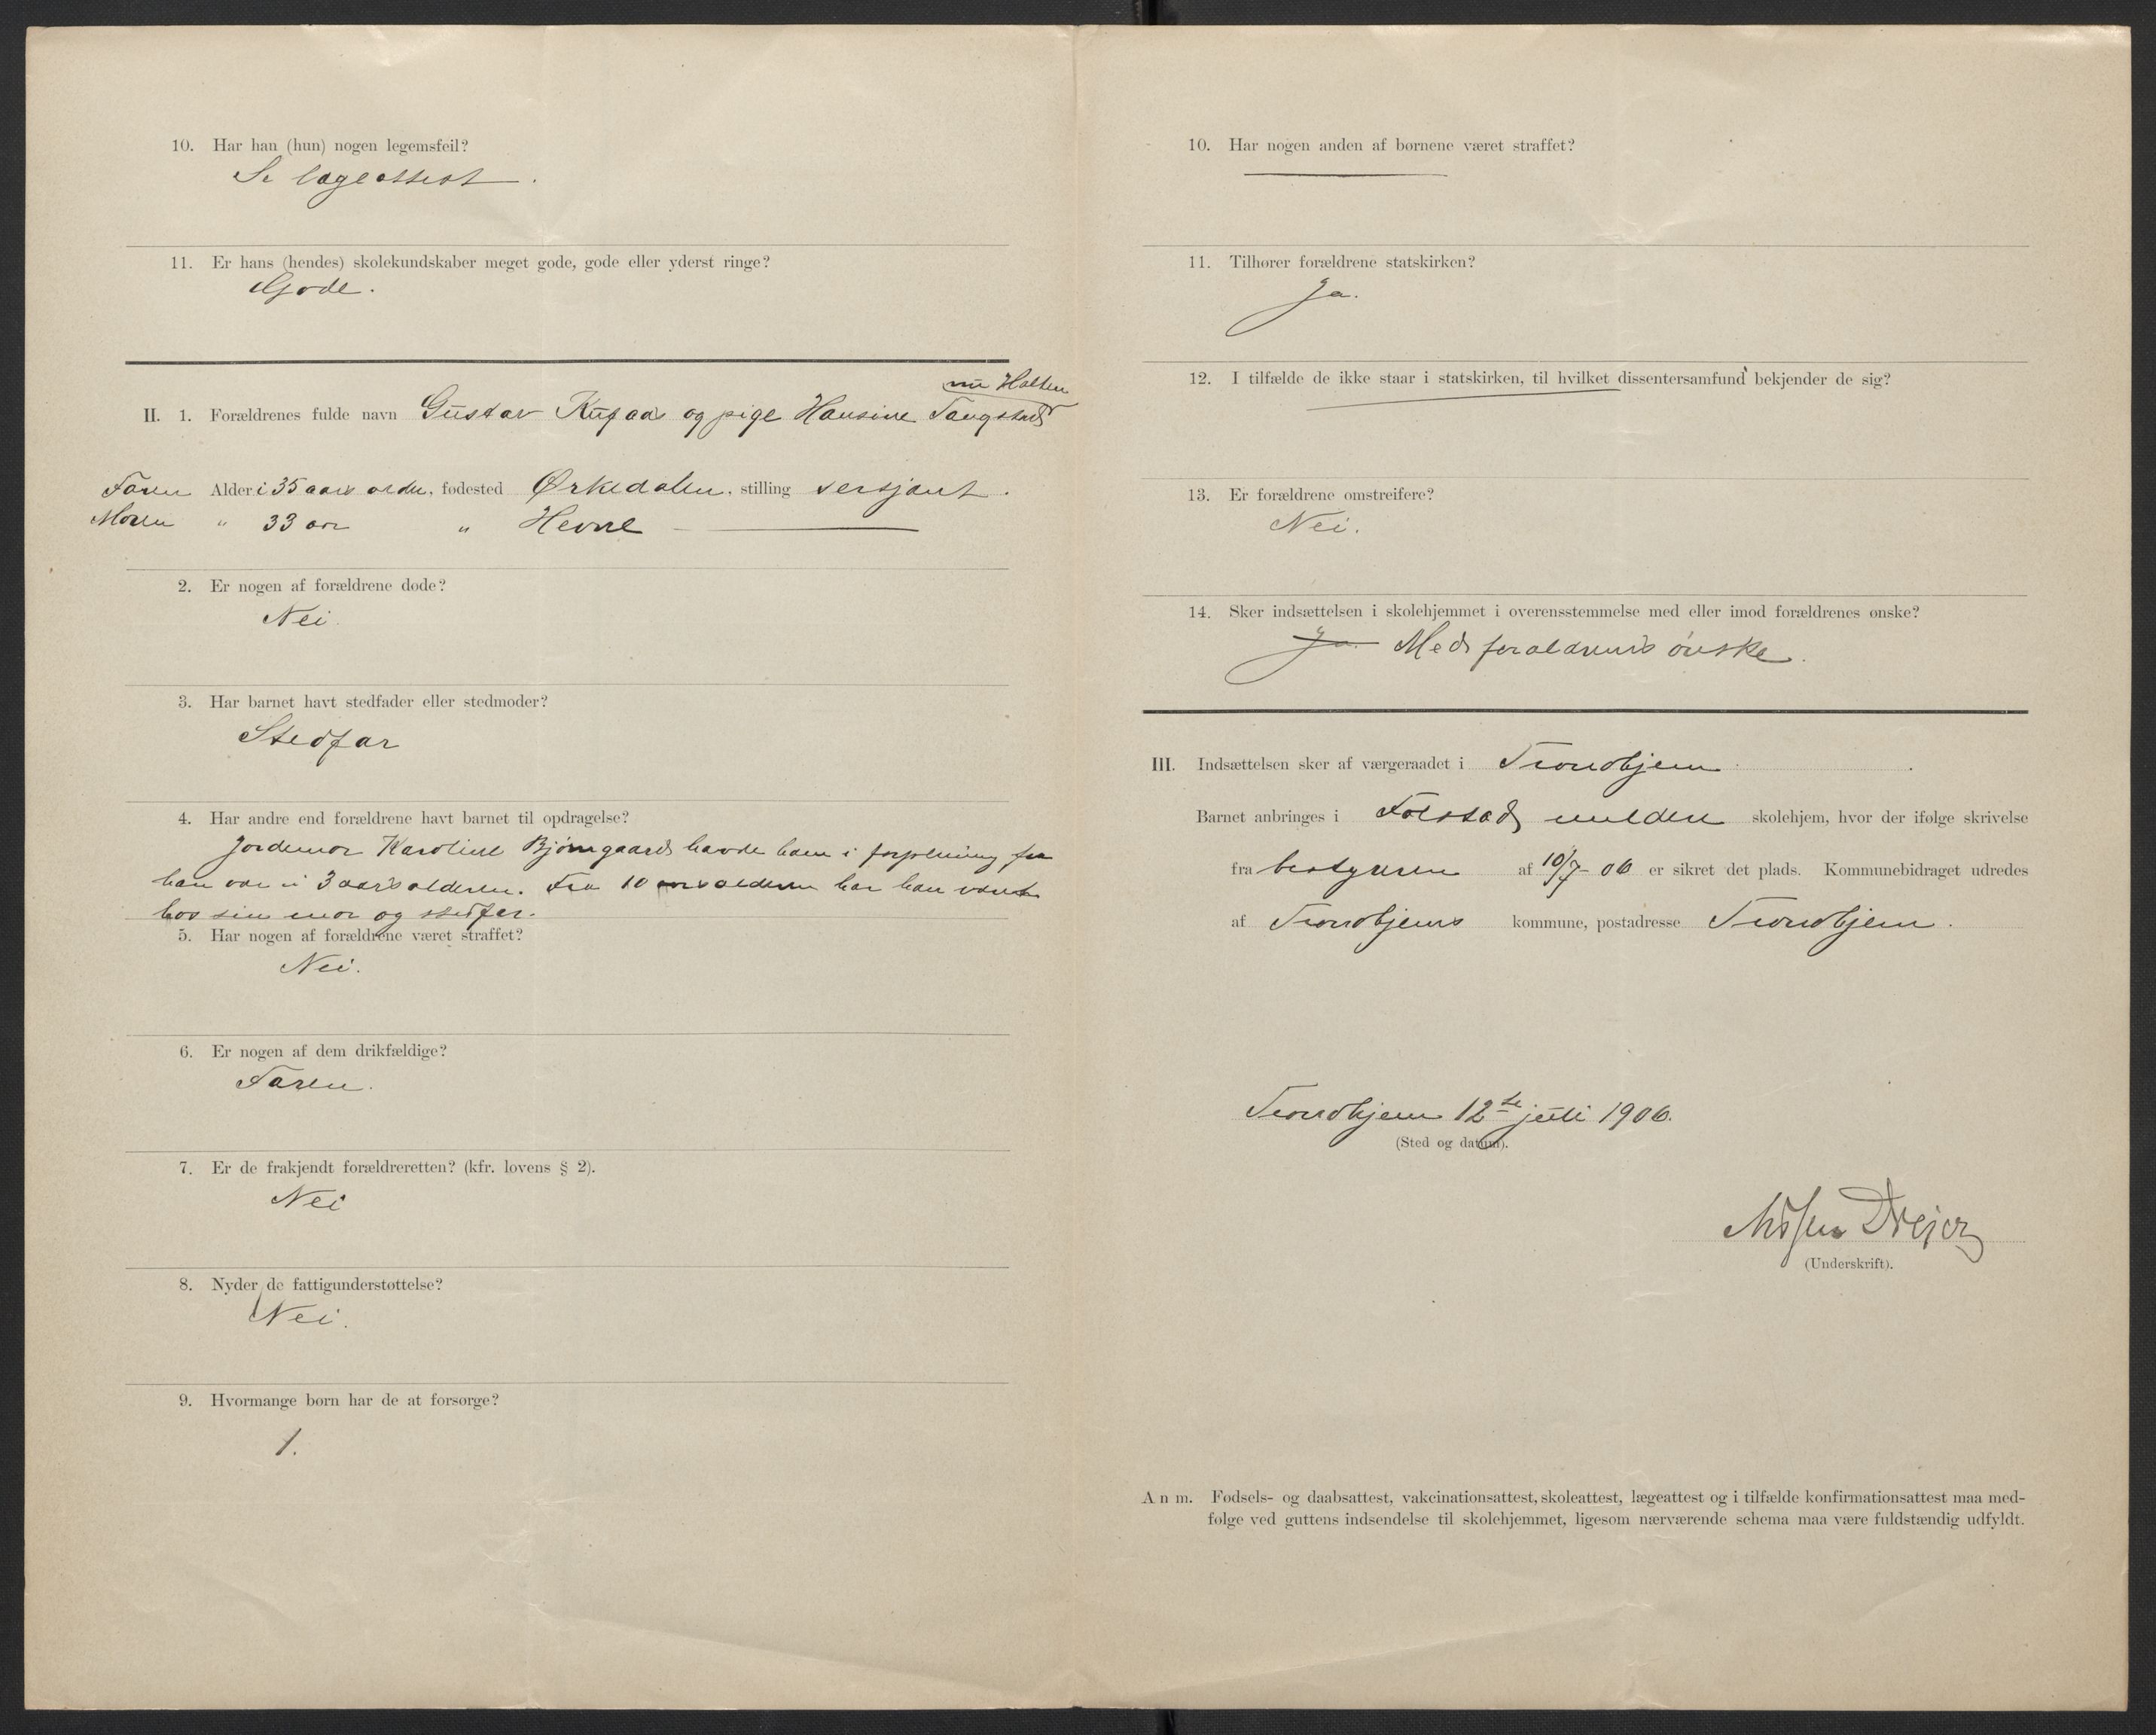 10. Har han (hun) nogen legemsfeil?
Se lægeattest.
11. Er hans (hendes) skolekundskaber meget gode, gode eller yderst ringe?
Gode.
nu Holten
II. 1. Forældrenes fulde navn Gustav og pige Hansine
Faren Alder i 35 aars alder, fødested Ørkedalen, stilling sersjant.
Moren " 33 aar " Hevne —
2. Er nogen af forældrene døde?
Nei.
3. Har barnet havt stedfader eller stedmoder?
Stedfar
4. Har andre end forældrene havt barnet til opdragelse?
Jordemor Karoline Bjørngaard havde ham i forpleining fra
han var i 3 aars alderen. Fra 10 aars alderen har han været
hos sin mor og stedfar.
5. Har nogen af forældrene været straffet?
Nei.
6. Er nogen af dem drikfældige?
Faren.
7. Er de frakjendt forældreretten? (kfr. lovens § 2).
Nei
8. Nyder de fattigunderstøttelse?
Nei.
9. Hvormange børn har de at forsørge?
1.
10. Har nogen anden af børnene været straffet?
11. Tilhører forældrene statskirken?
Ja.
12. I tilfælde de ikke staar i statskirken, til hvilket dissentersamfund bekjender de sig?
13. Er forældrene omstreifere?
Nei.
14. Sker indsættelsen i skolehjemmet i overensstemmelse med eller imod forældrenes ønske?
Ja. Med forældrenes ønske.
III. Indsættelsen sker af værgeraadet i Trondhjem.
Barnet anbringes i Falstad skolehjem, hvor der ifølge skrivelse
fra bestyreren af 10/7-06 er sikret det plads. Kommunebidraget udredes
af Trondhjems kommune, postadresse Trondhjem.
Trondhjem 12te juli 1906.
(Sted og datum).
Dreier
(Underskrift).
Anm. Fødsels- og daabsattest, vakcinationsattest, skoleattest, lægeattest og i tilfælde konfirmationsattest maa med-
følge ved guttens indsendelse til skolehjemmet, ligesom nærværende schema maa være fuldstændig udfyldt.